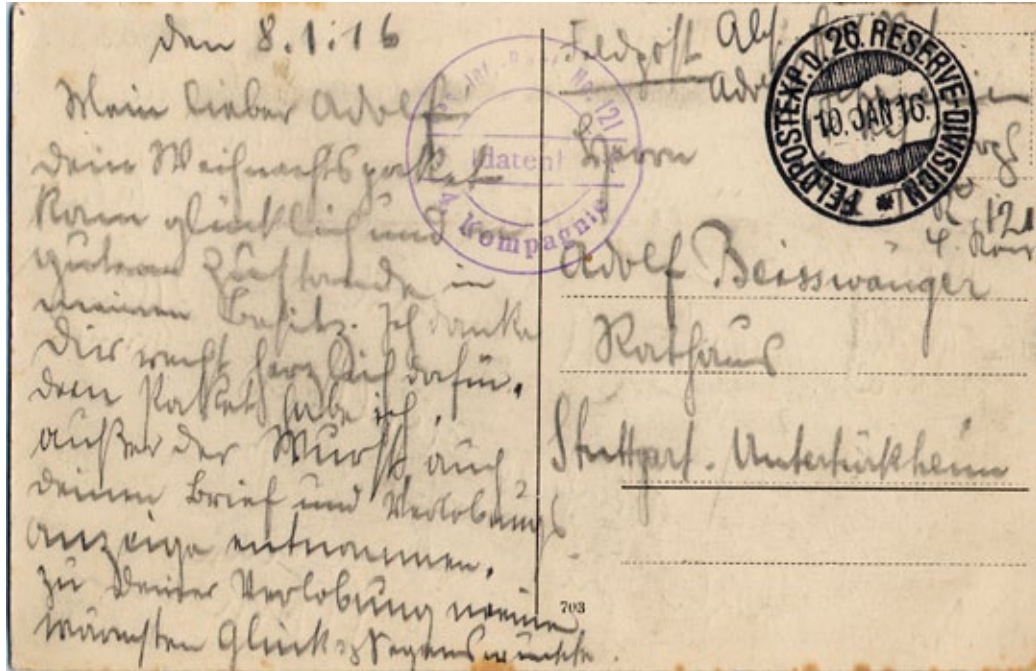 den 8.1.16
Mein lieber Adolf
Dein Weihnachtspaket
kam glücklich und
gutem Zustande in
meinen Besitz. Ich danke
Dir recht herzlich dafür.
dem Paket habe ich,
außer der Wurst, auch
deinen Brief und Verlobungs
Anzeige entnommen.
Zu Deiner Verlobung meine
wärmsten Glück & Segenswünsche.
No. 121
daten
4. Kompagnie
FELDPOSTEXP. D. 26. RESERVE-DIVISION
10. JAN 16.
Feldpost
Herrn
Adolf Beisswänger
Rathaus
Stuttgart-Untertürkheim
703